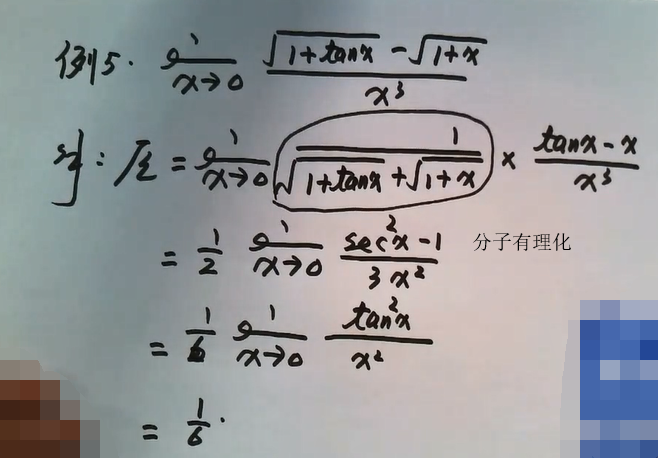 例5. lim x→0 (√(1+tanx) - √(1+x)) / x³
解: 原 = lim x→0 1 / (√(1+tanx) + √(1+x)) × (tanx - x) / x³
= 1/2 lim x→0 (sec²x - 1) / 3x² 分子有理化
= 1/6 lim x→0 tan²x / x²
= 1/6.